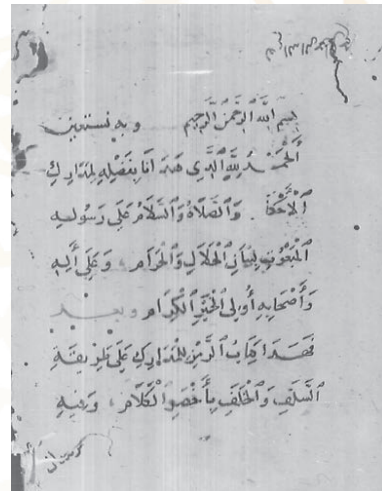 بِسْمِ اللَّهِ الرَّحْمَنِ الرَّحِيمِ وبه نستعين
اَلْحَمْدُ لِلَّهِ الَّذِي هَدَانَا بِفَضْلِهِ لِمَدَارِكِ
اَلْأَحْكَا وَالصَّلَاةُ وَالسَّلَامُ عَلَى رَسُولِهِ
الْمَبْعُوثِ لِبَيَانِ الْحَلَالِ وَالْحَرَامِ وَعَلَى أَلِهِ
وَأَصْحَابِهِ أُولِى الْخَيْرِ الْكِرَامِ وبعد
فَهَذَا كِتَابُ لِلْمَدَارِكِ عَلَى طَرِيقَةِ
اَلسَّلَفِ وَالْخَلَفِ الْكَلَامِ